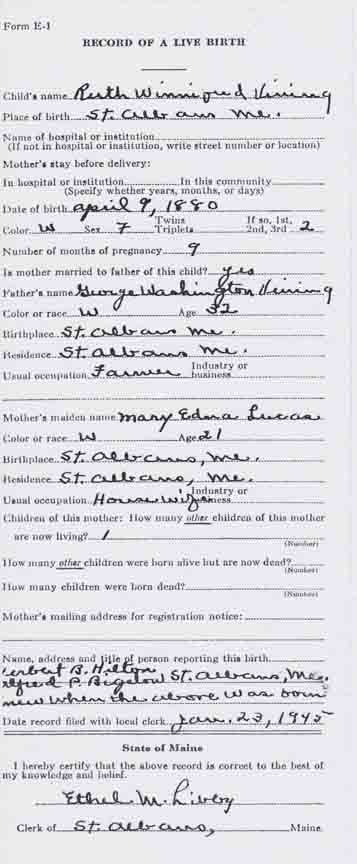 Form E-1
RECORD OF A LIVE BIRTH
Child's name Ruth Winnifred Vining
Place of birth St. Albans Me.
Name of hospital or institution
(If not in hospital or institution, write street number or location)
Mother's stay before delivery:
In hospital or institution In this community
(Specify whether years, months, or days)
Date of birth April 9, 1880
Color W Sex F Twins Triplets If so, 1st, 2nd, 3rd 2
Number of months of pregnancy 9
Is mother married to father of this child? yes
Father's name George Washington Vining
Color or race W Age 32
Birthplace St. Albans Me.
Residence St. Albans Me.
Usual occupation Farmer Industry or business
Mother's maiden name Mary Edna Lucas
Color or race W Age 21
Birthplace St. Albans, Me.
Residence St. Albans, Me.
Usual occupation House Wife Industry or business
Children of this mother: How many other children of this mother
are now living? 1
(Number)
How many other children were born alive but are now dead?
(Number)
How many children were born dead?
(Number)
Mother's mailing address for registration notice:
Name, address and title of person reporting this birth
erbert B. Hilton
lfred P. Bigelow St. Albans, Me.
new when the above was born
Date record filed with local clerk Jan. 23, 1945
State of Maine
I hereby certify that the above record is correct to the best of
my knowledge and belief.
Ethel M. Libby
Clerk of St. Albans, Maine.